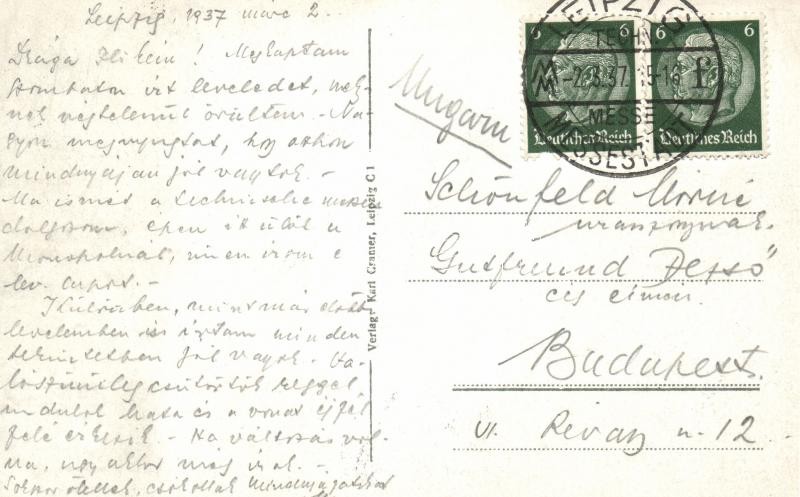 Leipzig, 1937 márc 2.
Drága Ilikém! Megkaptam
szombaton írt leveledet, mely-
nek végtelenül örültem. Na-
gyon megnyugtat, hogy otthon
mindnyájan jól vagytok. -
Ma ismét a technische messen
dolgozom, épen itt ülök a
, innen írom e
lev. lapot. -
Különben, mint már előbbi
levelemben is írtam minden
tekintetben jól vagyok. Va-
lószínűleg csütörtök reggel
indulok haza és a vonat éjfél
felé érkezik. - Ha változás vol-
na, úgy akkor még írok. -
Sokszor ölellek, csókollak mindnyájatokat
Verlag: Karl Cramer, Leipzig C 1
6
6
Deutsches Reich
Deutsches Reich
LEIPZIG
TECHN.
MM -2.3.37. 15-16 f
MESSE
MESSESTADT
Ungarn
Schönfeld Mórné
uraszonynak
Gutfreund Dezső
cég címén
Budapest.
VI. Révay u. 12